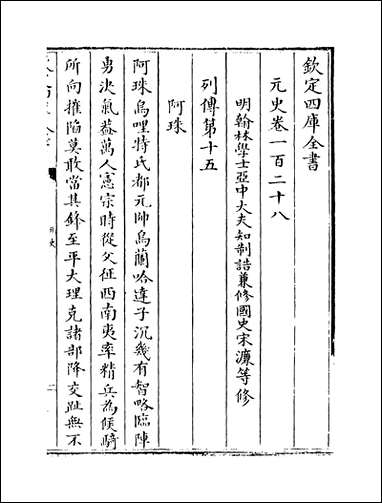 欽定四庫全書
元史卷一百二十八
明翰林學士亞中大夫知制誥兼修國史宋濂等修
列傳第十五
阿珠
阿珠烏哩特氏都元帥烏蘭哈達子沉幾有智略臨陣
勇決氣葢萬人憲宗時從父征西南夷率精兵為候騎
所向摧陷莫敢當其鋒至平大理克諸部降交趾無不
元史